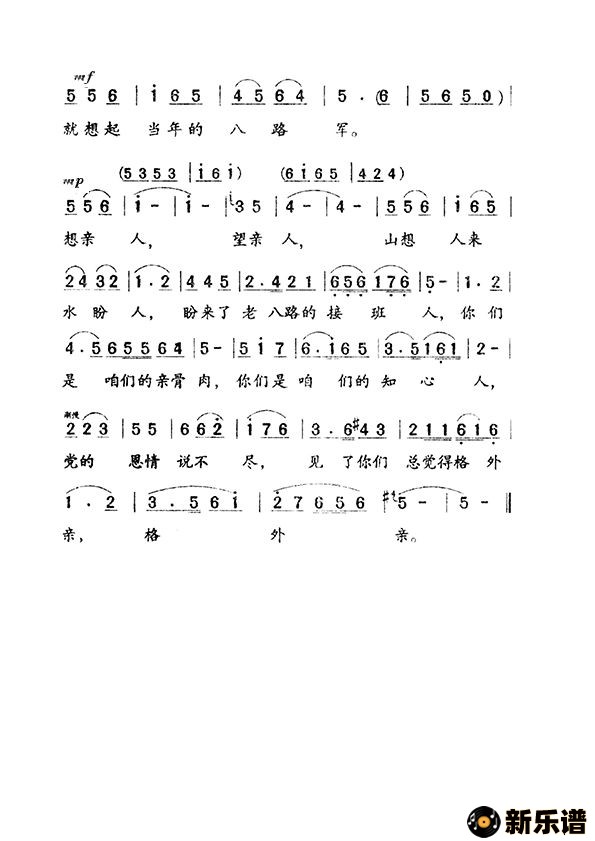 mf
5 5 6 | i 6 5 | 4 5 6 4 | 5 . (6 | 5 6 5 0) |
就想起 当年的 八 路 军。
(5353 | i 6 i) (6i65 | 424)
mp
5 5 6 | i - | i - | 35 | 4 - | 4 - | 5 5 6 | i 6 5 |
想亲 人, 望亲 人, 山想 人来
24 32 | 1 . 2 | 4 4 5 | 2 . 4 2 1 | 656 176 | 5 - | 1 . 2 |
水盼 人, 盼来了 老八路的接 班 人,你们
4 . 565564 | 5 - | 5 1 7 | 6 . i65 | 3 . 5161 | 2 - |
是 咱们的亲骨 肉,你们是 咱 们的 知 心 人,
渐慢
2 2 3 | 5 5 | 6 6 2 | i 7 6 | 3 . 6 #4 3 | 2 1 1 6 1 6 |
党的 恩情 说不 尽, 见 了你们 总觉得格 外
1 . 2 | 3 . 5 6 i | 2 7 6 5 6 | 5 - | 5 - ‖
亲, 格 外 亲。
新乐谱